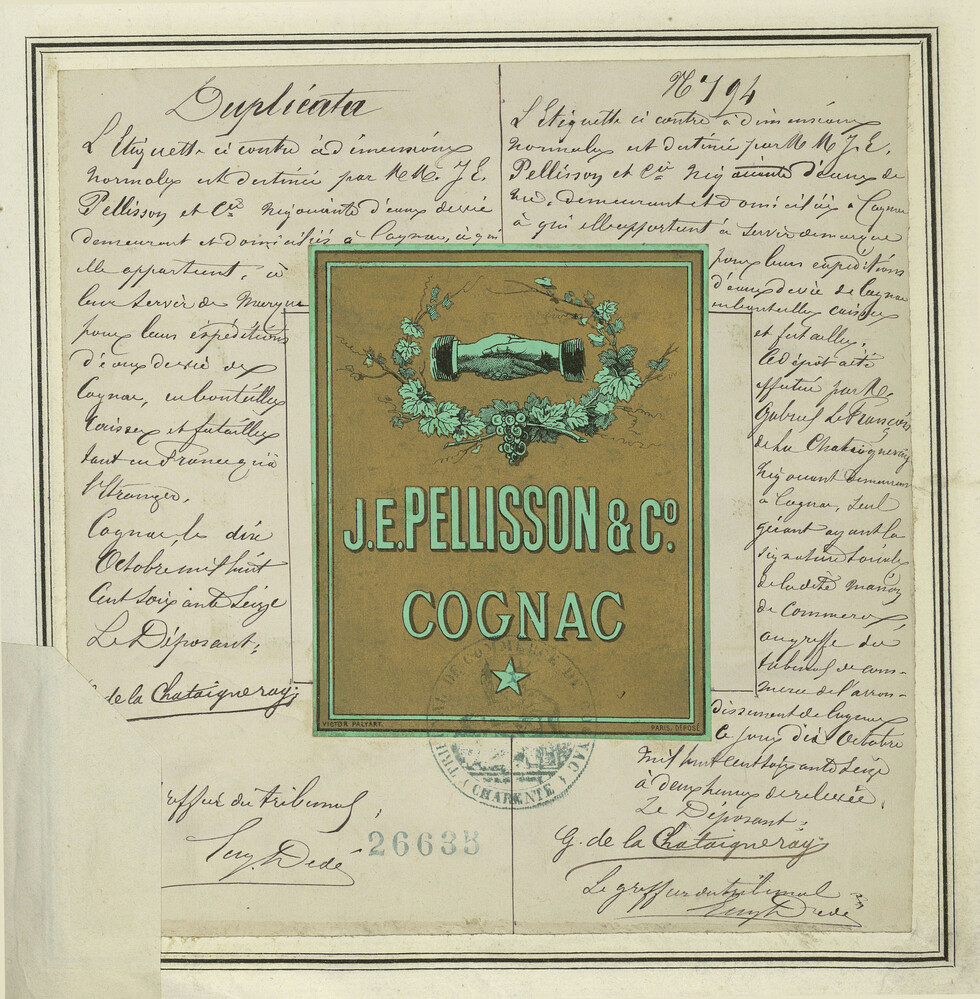 Duplicata
L'Etiquette ci contre à dimensions
normales est destinée par M M. J. E.
Pellisson et Cie Négociants d'eaux de vie
demeurant et domiciliés à Cognac, à qui
elle appartient, à
leur servir de Marque
pour leurs expéditions
d'eaux de vie de
Cognac, en bouteilles
Caisses et futailles
tant en France qu'à
l'Etranger.
Cognac, le dix
Octobre mil huit
Cent soixante Seize
Le Déposant,
de la Chataigneray
greffier du tribunal,
Dedé
26635
N° 194
L'Etiquette ci contre à dimensions
normales est destinée par M M J. E.
Pellisson et Cie Négociants d'eaux de
vie, demeurant et domiciliés à Cognac
à qui elle appartient à servir de marque
pour leurs expéditions
d'eaux de vie de Cognac
en bouteilles caisses
et futailles.
Ce dépôt a été
effectué par M.
Gabriel Le François
de la Chataigneray
Négociant demeurant
à Cognac, seul
gérant ayant la
signature sociale
de la dite maison
de Commerce
au greffe du
tribunal de com-
merce de l'arron-
dissement de Cognac
ce jour dix Octobre
mil huit cent soixante seize
à deux heures de relevée.
Le Déposant,
G. de la Chataigneray
Le greffier du tribunal
Dedé
J.E. PELLISSON & Co.
COGNAC
VICTOR PALYART.
PARIS, DÉPOSÉ
TRIBUNAL DE COMMERCE DE COGNAC
(CHARENTE)